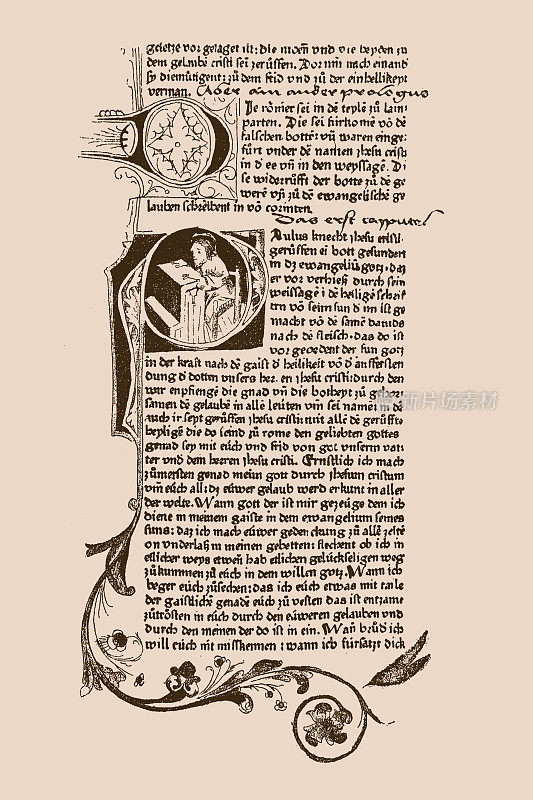 gesetze vor gesaget ist: die moen vnd die heyden zu
dem gelaubē cristi sein zerüffen. Dor nach einand
sy diemütigent: zů dem frid vnd zů der einhellikeyt
verman. Aber ain ander prologus
Die römer sei in dē teylē zů lam-
parten. Die sei fürkomē vō dē
falschen bottē: vñ waren einge-
fürt vnder dē namen jhesu cristi
in d ee vñ in den weyssagē. Di
se widerrüfft der botte zů dē ge
were vñ zů dē ewangelischē ge
lauben schreibent in vō corinten.
Das erst cappitel
Paulus knecht jhesu cristi.
gerüffen ei bott gesundert
in dz ewangeliū gotz. daz
er vor verhieß durch sein
weissagē i dē heiligē schrift
ten vō seim sun d im ist ge
macht vō dē samē dauids
nach dē fleisch. das do ist
vor geordent der sun gotz
in der kraft nach dē gaist d heilikeit vō d aufersten
dung d dotten vnsers her. en jhesu cristi: durch den
wir enpfiengē die gnad vñ die botheyt zů gehor
samen dē gelaubē in allē leüten vm sei namē in dē
auch ir seyt gerüffen jhesu cristi: mit allē dē gerüffte
heyligē die do seind zů rome den geliebten gottes
genad sey mit eüch vnd frid von got vnserm vat
ter vnd dem herren jhesu cristi. Ernstlich ich mach
zümersten genad meim gott durch jhesum cristum
vm eüch all: dz eüwer gelaub werd erkunt in aller
der welte. Wann gott der ist mir gezeüge dem ich
diene in meinem gaiste in dem ewangelium seines
suns: daz ich mach eüwer gedenckung zů allē zeitē
on vnderlaß in meinen gebetten: flechent ob ich in
etlicher weys etwen hab etlichen gelückseligen weg
zů kummen zů eüch in dem willen gotz. Wann ich
beger eüch züsehen: das ich eüch etwas mit taile
der gaistlichē genadē eüch zů vesten das ist entzame
zütrösten in eüch durch den eüweren gelauben vnd
durch den meinen der do ist in ein. Wañ brůd ich
will eüch nit misskennen: wann ich fürsatzt dick
新片场素材